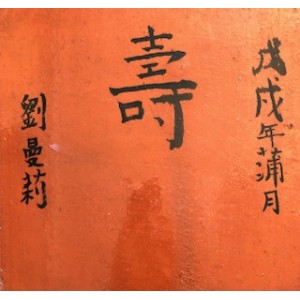 戊戌年蒲月
壽
劉曼莉